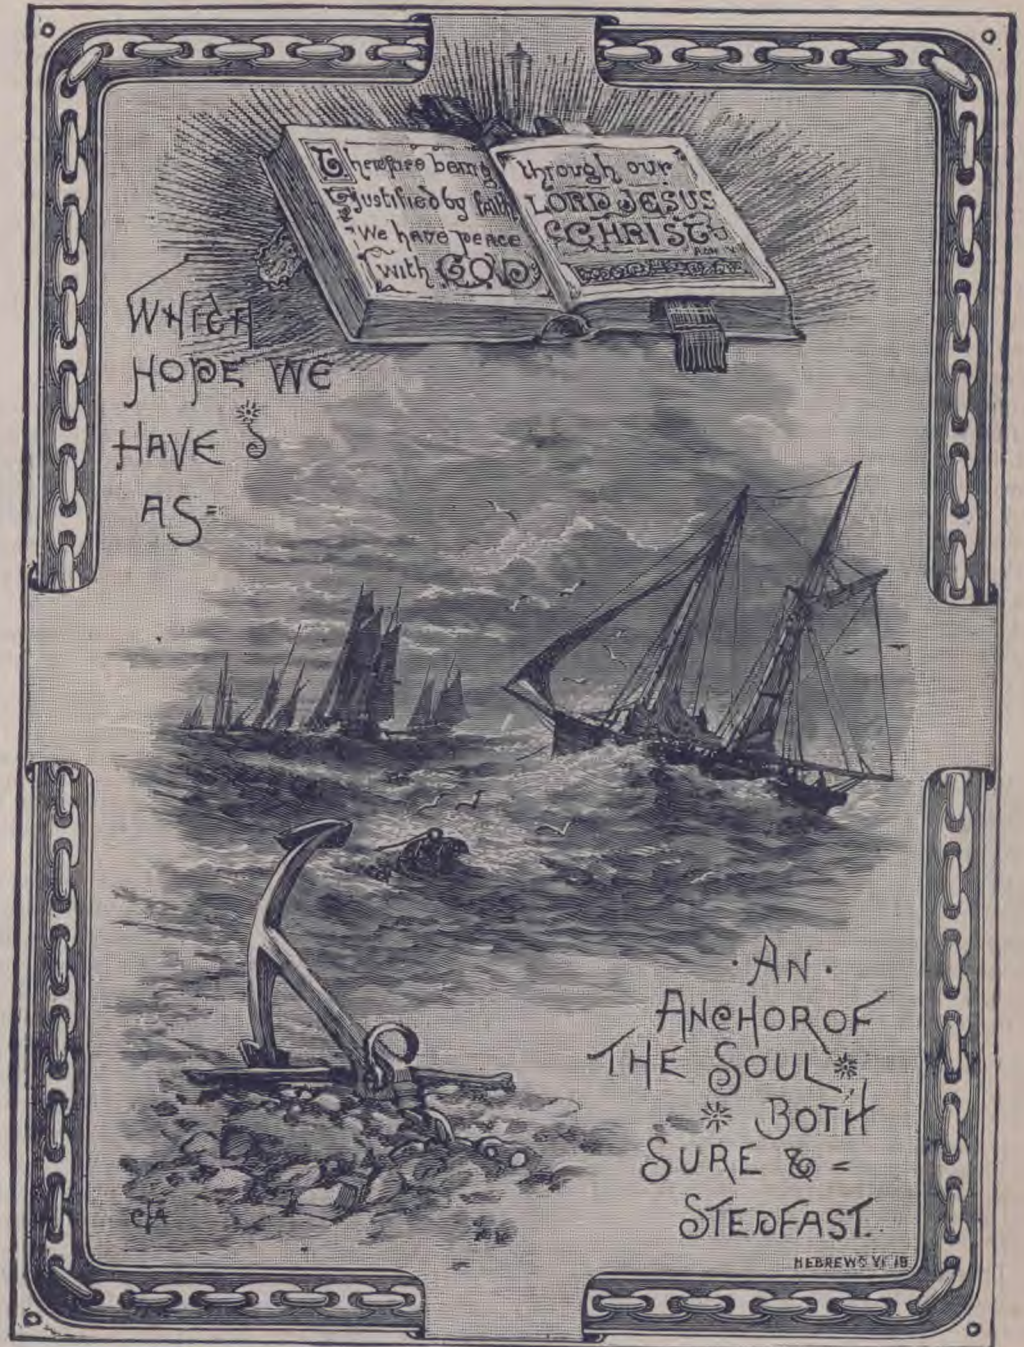 Therefore being
justified by faith
we have peace
with GOD
through our
LORD JESUS
CHRIST
ROM V
WHICH
HOPE WE
HAVE
AS=
·AN·
ANCHOR OF
THE SOUL
BOTH
SURE & =
STEDFAST.
HEBREWS VI 19